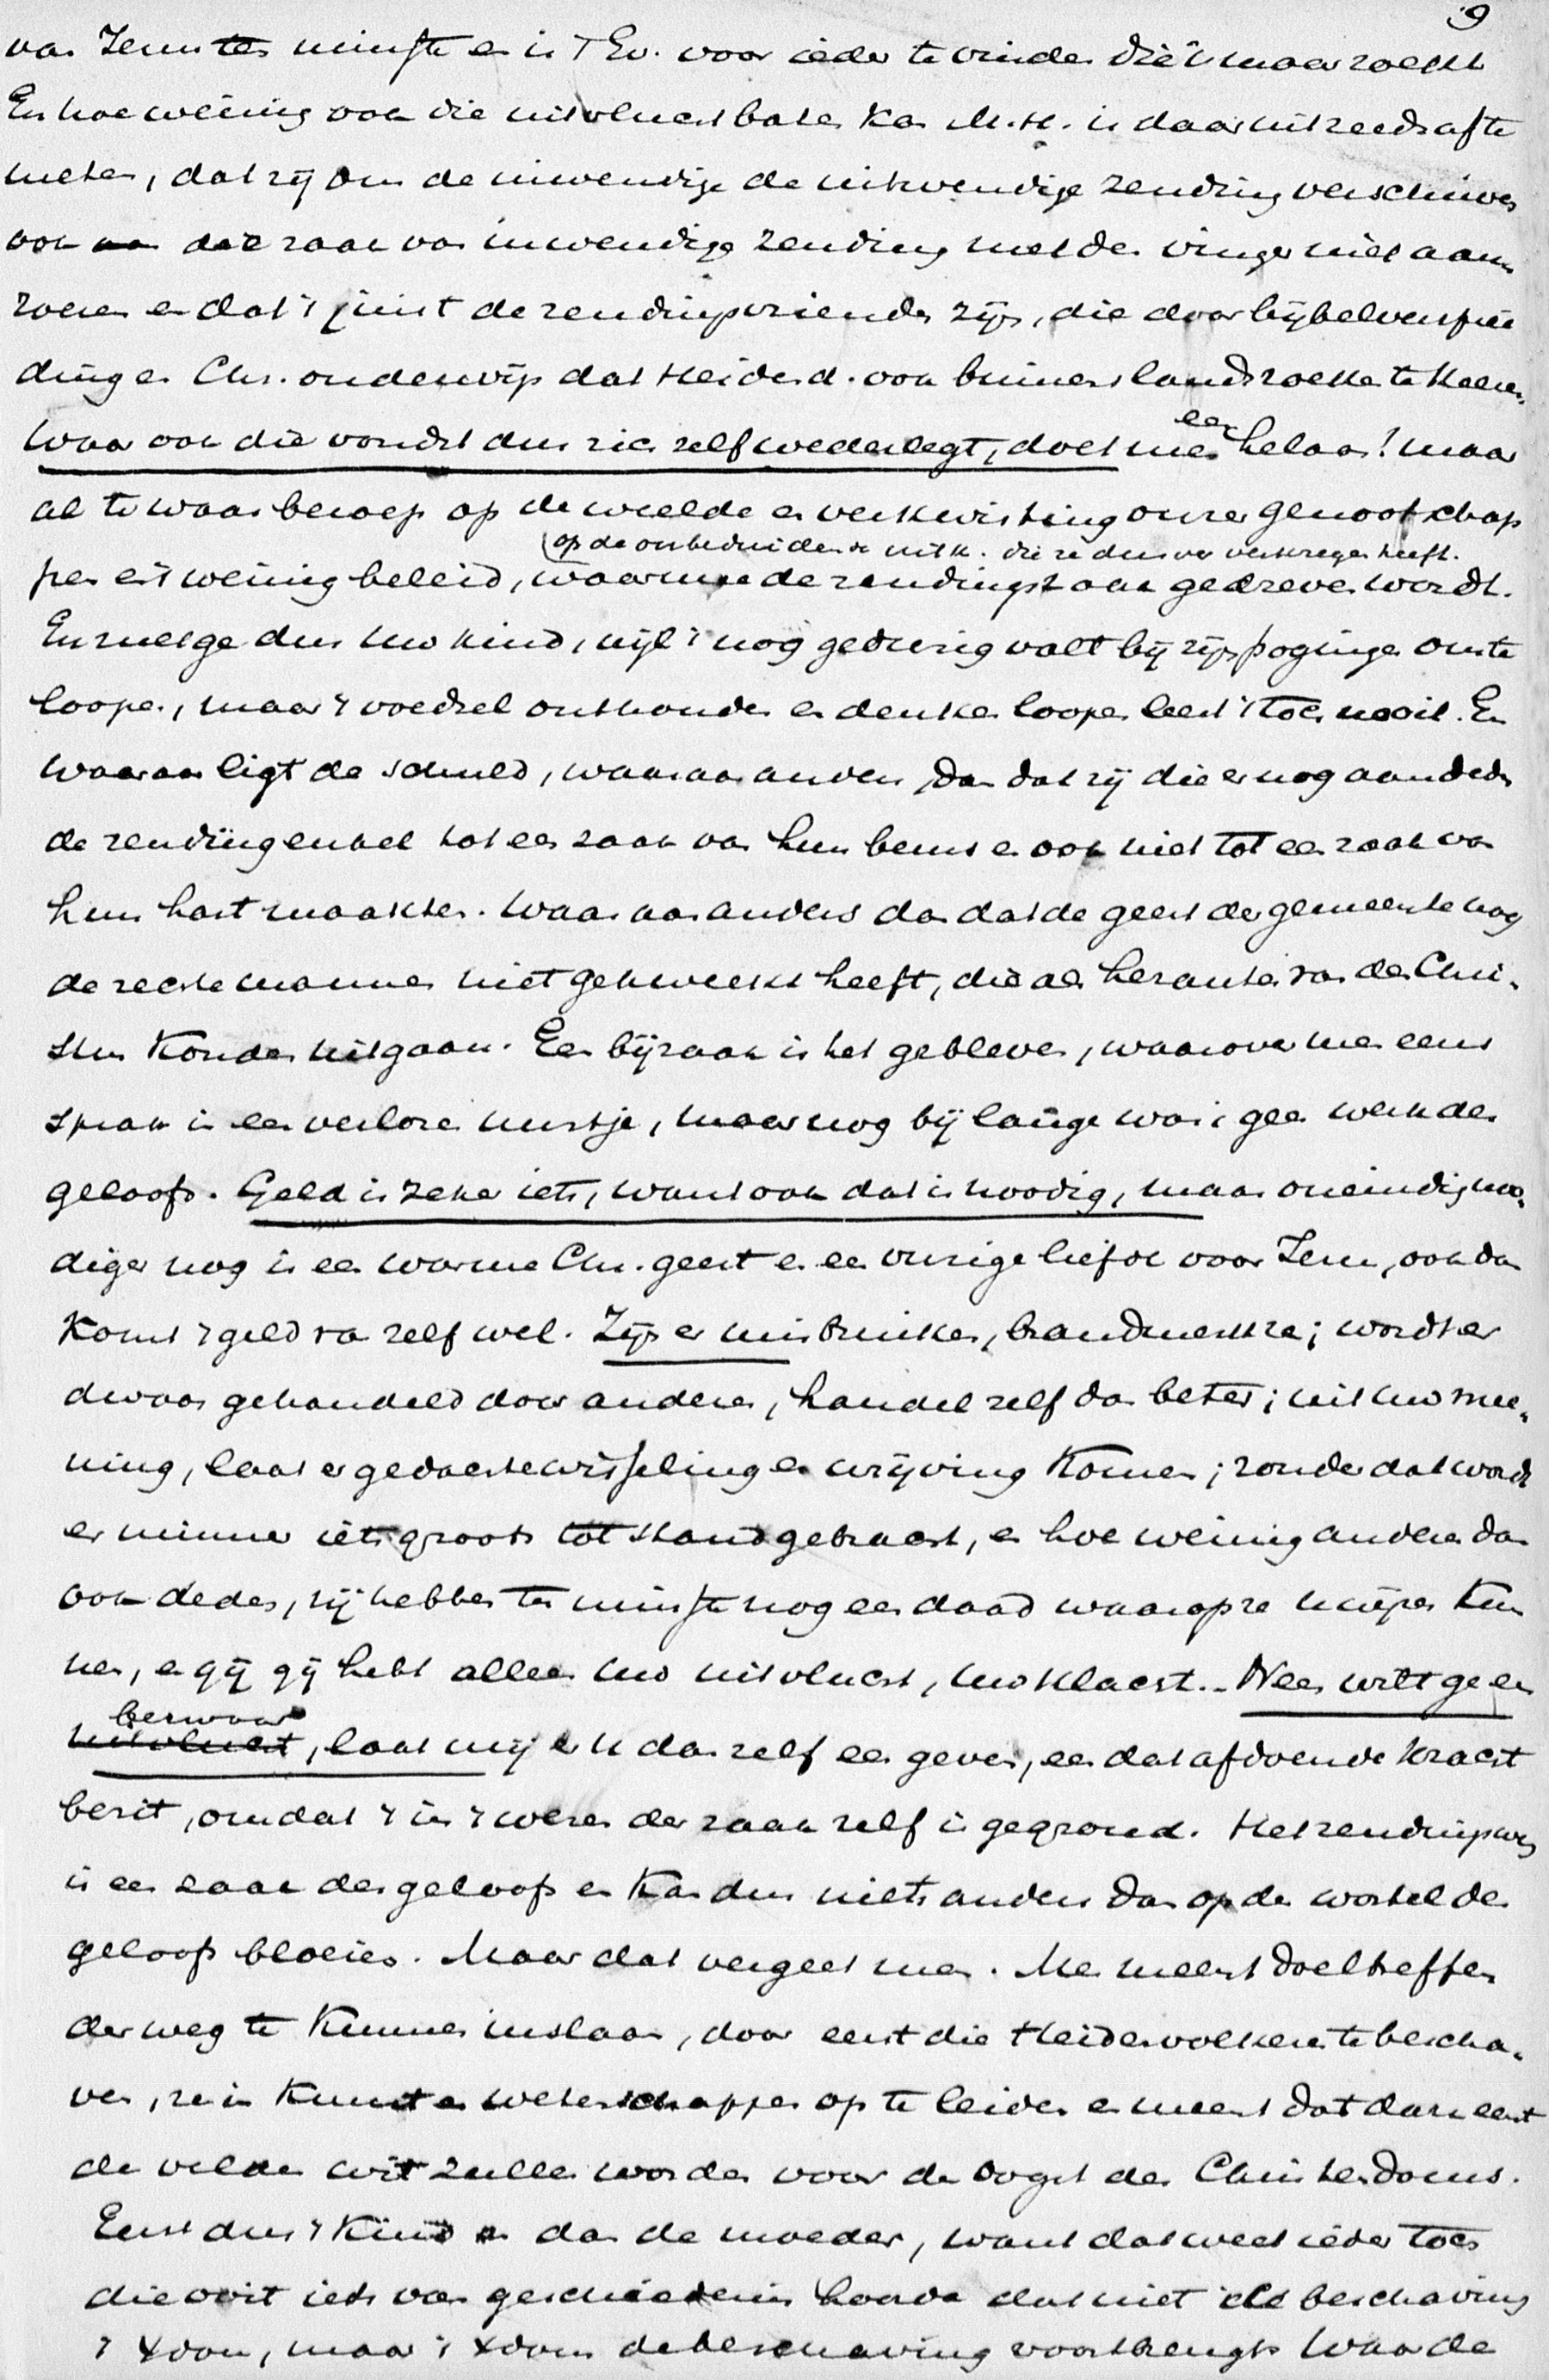 9
van Jezus ten minste en in 't Ev. voor ieder te vinden die 't maar zoekt
En hoe weinig ook die uitvlucht baten kan M.H. is daaruit reeds af te
meten, dat zij om de inwendige de uitwendige zending verschuiven
ook die zaak van inwendige zending met den vinger niet aan-
roeren en dat 't juist de zendingsvrienden zijn, die door bijbelversprei
ding en Chr. onderwijs dat Heidend. ook binnenslands zoeken te keeren.
Waar ook die vondst dus zich zelf wederlegt, doet men een helaas! maar
al te waar beroep op de weelde en verkwisting onzer genootschap
(op de onbeduidende uitk. die ze dus ver verkregen heeft.
pen en 't weinig beleid, waarmee de zendingszaak gedreven wordt.
En moet ge dus uw kind, wijl 't nog gedurig valt bij zijn pogingen om te
loopen, maar 't voedsel onthouden en denken loopen leert 't toch nooit. En
waaraan ligt de schuld, waaraan anders, dan dat zij die er nog aan deden
de zending enkel tot een zaak van hun beurs en ook niet tot een zaak van
hun hart maakten. Waaraan anders dan dat de geest der gemeente nog
de rechte mannen niet gekweekt heeft, die als herauten van den Chri-
stus konden uitgaan. Een bijzaak is het gebleven, waarover men eens
sprak in een verloren uurtje, maar nog bij lange was 't geen werk des
geloofs. Geld is zeker iets, want ook dat is noodig, maar oneindig noo-
diger nog is een warme Chr. geest en een vurige liefde voor Jezus, ook dan
komt 't geld van zelf wel. Zijn er misbruiken, brandmerk ze; wordt er
dwaas gehandeld door anderen, handel zelf dan beter; uit uw mee-
ning, laat er gedachtewisseling en wrijving komen; zonder dat wordt
er nimmer iets groots tot stand gebracht, en hoe weinig anderen dan
ook deden, zij hebben ten minste nog een daad waarop ze wijzen kun
nen, en gij gij hebt alleen uw uitvlucht, uw klacht. - Neen wilt ge een
bezwaar
uitvlucht, laat mij er u dan zelf een geven, een dat afdoende kracht
bezit, omdat 't in 't wezen der zaak zelf is gegrond. Het zendingswerk
is een zaak des geloofs en kan dus niets anders dan op den wortel des
geloofs bloeien. Maar dat vergeet men. Men meent doeltreffen
der weg te kunnen inslaan, door eerst die Heidenvolken te bescha-
ven, ze in kunst en wetenschappen op te leiden en meent dat dan eerst
de velden wit zullen worden voor den oogst des Christendoms.
Eerst dus 't kind en dan de moeder, want dat weet ieder toch
die ooit iets van geschiedenis hoorde dat niet de beschaving
't Xdom, maar 't Xdom de beschaving voortbrengt. Waar de